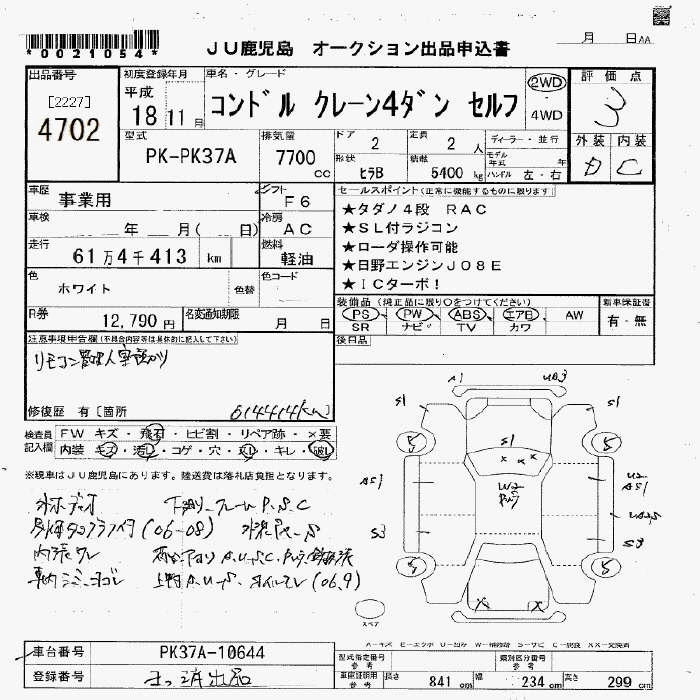 *0021054*
JU鹿児島 オークション出品申込書
月 日 AA
出品番号
[2227]
4702
初度登録年月
平成 18 11 月
車名・グレード
コンドル クレーン4ダン セルフ
2WD
・
4WD
評価点
3
外装 内装
D C
型式
PK-PK37A
排気量
7700 cc
ドア 2
定員 2 人
形状 ヒラB
積載 5400 kg
ディーラー・並行
モデル年式 年
ハンドル 左・右
車歴 事業用
シフト F6
車検 年 月( 日)
冷房 AC
走行 61万4千413 km
燃料 軽油
色 ホワイト 色替
色コード
R券 12,790 円
名変通知期限 月 日
セールスポイント(正常に機能するものに限ります)
★タダノ4段 RAC
★SL付ラジコン
★ローダ操作可能
★日野エンジンJ08E
★ICターボ!
装備品(純正品に限り○をつけてください)
PS PW ABS エアB AW
SR ナビ TV カワ
新車保証書
有・無
後日品
注意事項申告欄(不具合内容等は具体的に記入して下さい)
修復歴 有[箇所
614414km
検査員記入欄
FW キズ・飛石・ヒビ割・リペア跡・×要
内装 キズ・汚し・コゲ・穴・スレ・キレ・破れ
※現車はJU鹿児島にあります。陸送費は落札店負担となります。
下廻り フレーム P.S.C
(06-08)
(06.9)
A1 UB3
S1 S1
5 5
S1
AS1 W2 U2 AS1
S3 S3
5 5
スペア
A-キズ E-エクボ U-凹み W-補修跡 S-サビ C-腐食 XX-交換済
車台番号 PK37A-10644
登録番号 まっ消出品
型式指定番号 参考
類別区分番号 参考
車庫証明用 参考
長さ 841 cm
幅 234 cm
高さ 299 cm